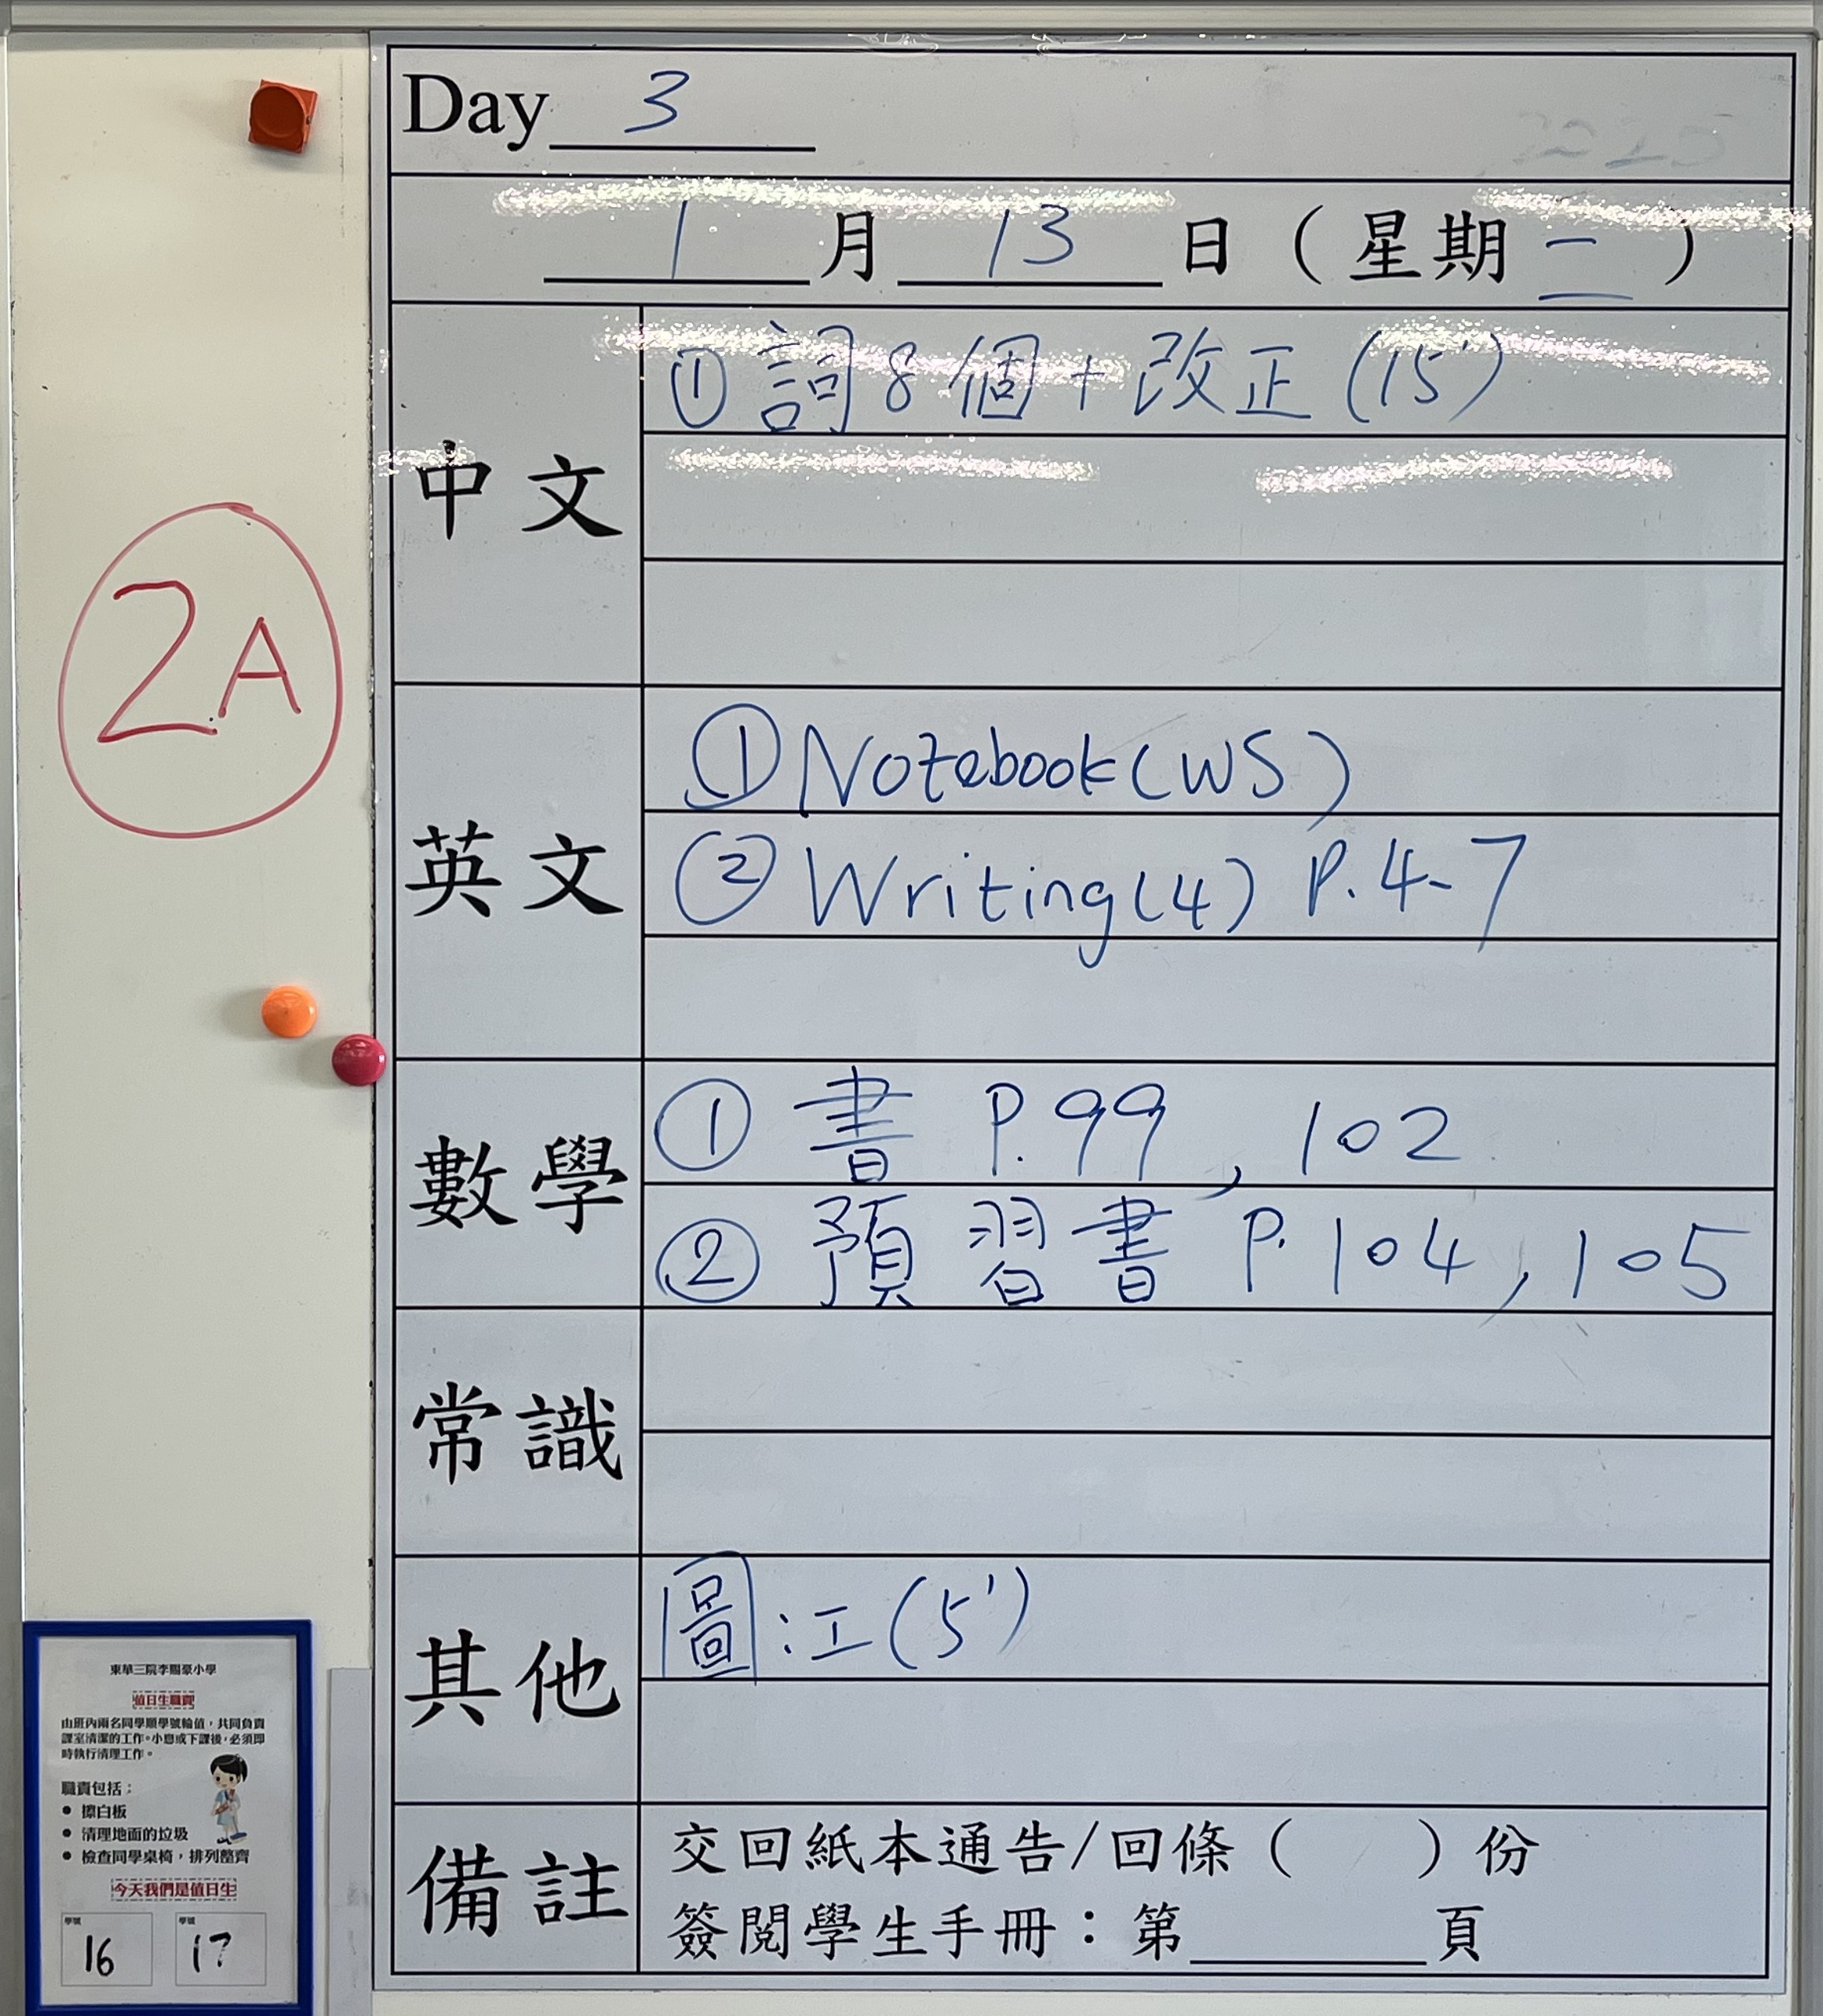 Day 3
1月13日(星期一)
中文
①詞8個+改正(15')
英文
①Notebook(WS)
②Writing(4) P.4-7
數學
①書 P.99, 102
②預習書 P.104, 105
常識
其他
圖:江(5')
備註
交回紙本通告/回條( )份
簽閱學生手冊:第 頁
2A
東華三院李賜豪小學
值日生職責
由班內兩名同學順學號輪值,共同負責
課室清潔的工作。小息或下課後,必須即
時執行清理工作。
職責包括:
● 擦白板
● 清理地面的垃圾
● 檢查同學桌椅,排列整齊
今天我們是值日生
學號 學號
16 17